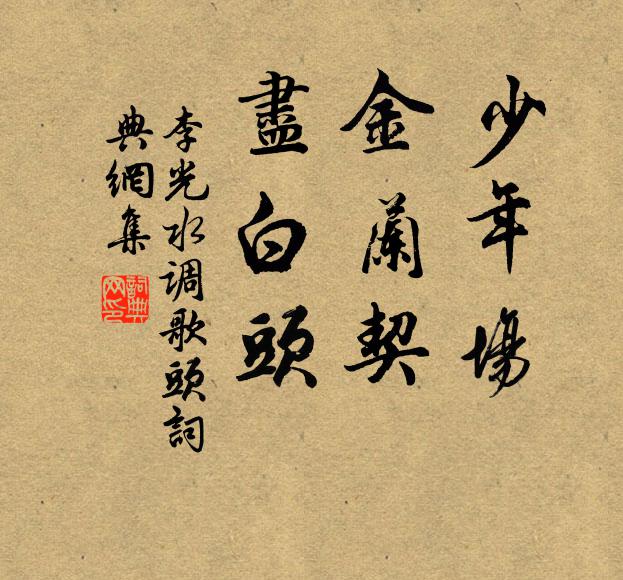 少年場
金蘭契
盡白頭
李光水调歌頭詞
典網集
詞典
网印